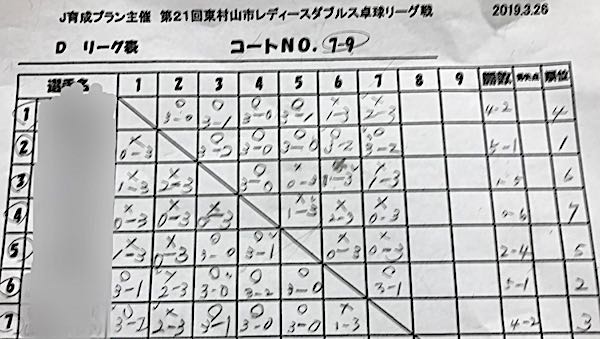 J育成プラン主催 第21回東村山市レディースダブルス卓球リーグ戦 2019.3.26
D リーグ表 コートNO. 7-9
選手名 1 2 3 4 5 6 7 8 9 勝敗 得失点 順位
1 ○ 3-0 ○ 3-1 ○ 3-0 ○ 3-1 × 1-3 × 2-3 4-2 4
2 × 0-3 ○ 3-0 ○ 3-0 ○ 3-2 ○ 3-2 5-1 1
3 × 1-3 ○ 3-0 × 0-3 × 1-3 × 1-3 1-5 6
4 × 0-3 × 0-3 × 0-3 × 1-3 × 2-3 × 0-3 0-6 7
5 × 1-3 × 0-3 ○ 3-0 ○ 3-1 × 0-3 × 0-3 2-4 5
6 ○ 3-1 × 2-3 ○ 3-0 ○ 3-2 ○ 3-0 ○ 3-1 5-1 2
7 ○ 3-2 × 2-3 ○ 3-1 ○ 3-0 ○ 3-0 × 1-3 4-2 3